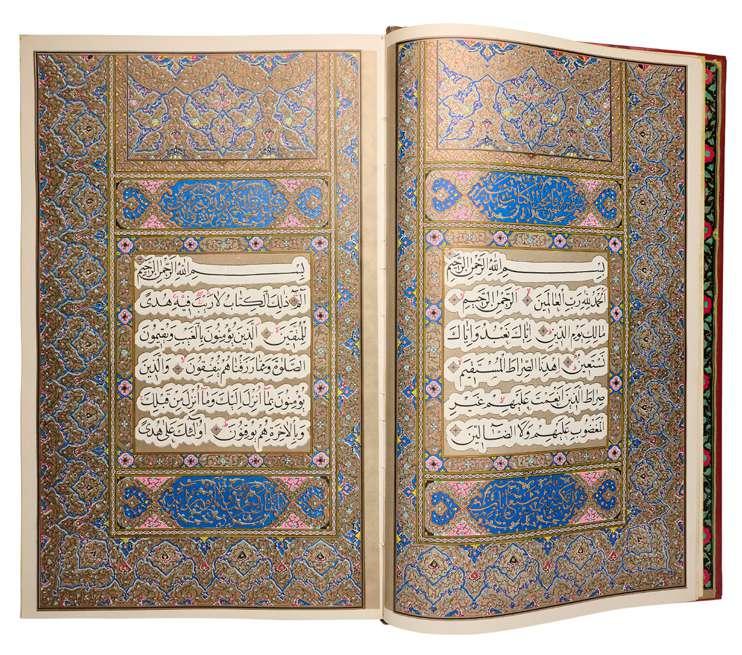 بِسْمِ اللهِ الرَّحْمٰنِ الرَّحِيمِ
اَلْحَمْدُ لِلّٰهِ رَبِّ الْعَالَمِينَ الرَّحْمٰنِ الرَّحِيمِ
مَالِكِ يَوْمِ الدِّينِ اِيَّاكَ نَعْبُدُ وَاِيَّاكَ
نَسْتَعِينُ اِهْدِنَا الصِّرَاطَ الْمُسْتَقِيمَ
صِرَاطَ الَّذِينَ اَنْعَمْتَ عَلَيْهِمْ غَيْرِ
الْمَغْضُوبِ عَلَيْهِمْ وَلَا الضَّالِّينَ
بِسْمِ اللهِ الرَّحْمٰنِ الرَّحِيمِ
الٓمٓ ذٰلِكَ الْكِتَابُ لَا رَيْبَ فِيهِ هُدًى
لِلْمُتَّقِينَ الَّذِينَ يُؤْمِنُونَ بِالْغَيْبِ وَيُقِيمُونَ
الصَّلٰوةَ وَمِمَّا رَزَقْنَاهُمْ يُنْفِقُونَ وَالَّذِينَ
يُؤْمِنُونَ بِمَا اُنْزِلَ اِلَيْكَ وَمَا اُنْزِلَ مِنْ قَبْلِكَ
وَبِالْاٰخِرَةِ هُمْ يُوقِنُونَ اُولٰئِكَ عَلٰى هُدًى